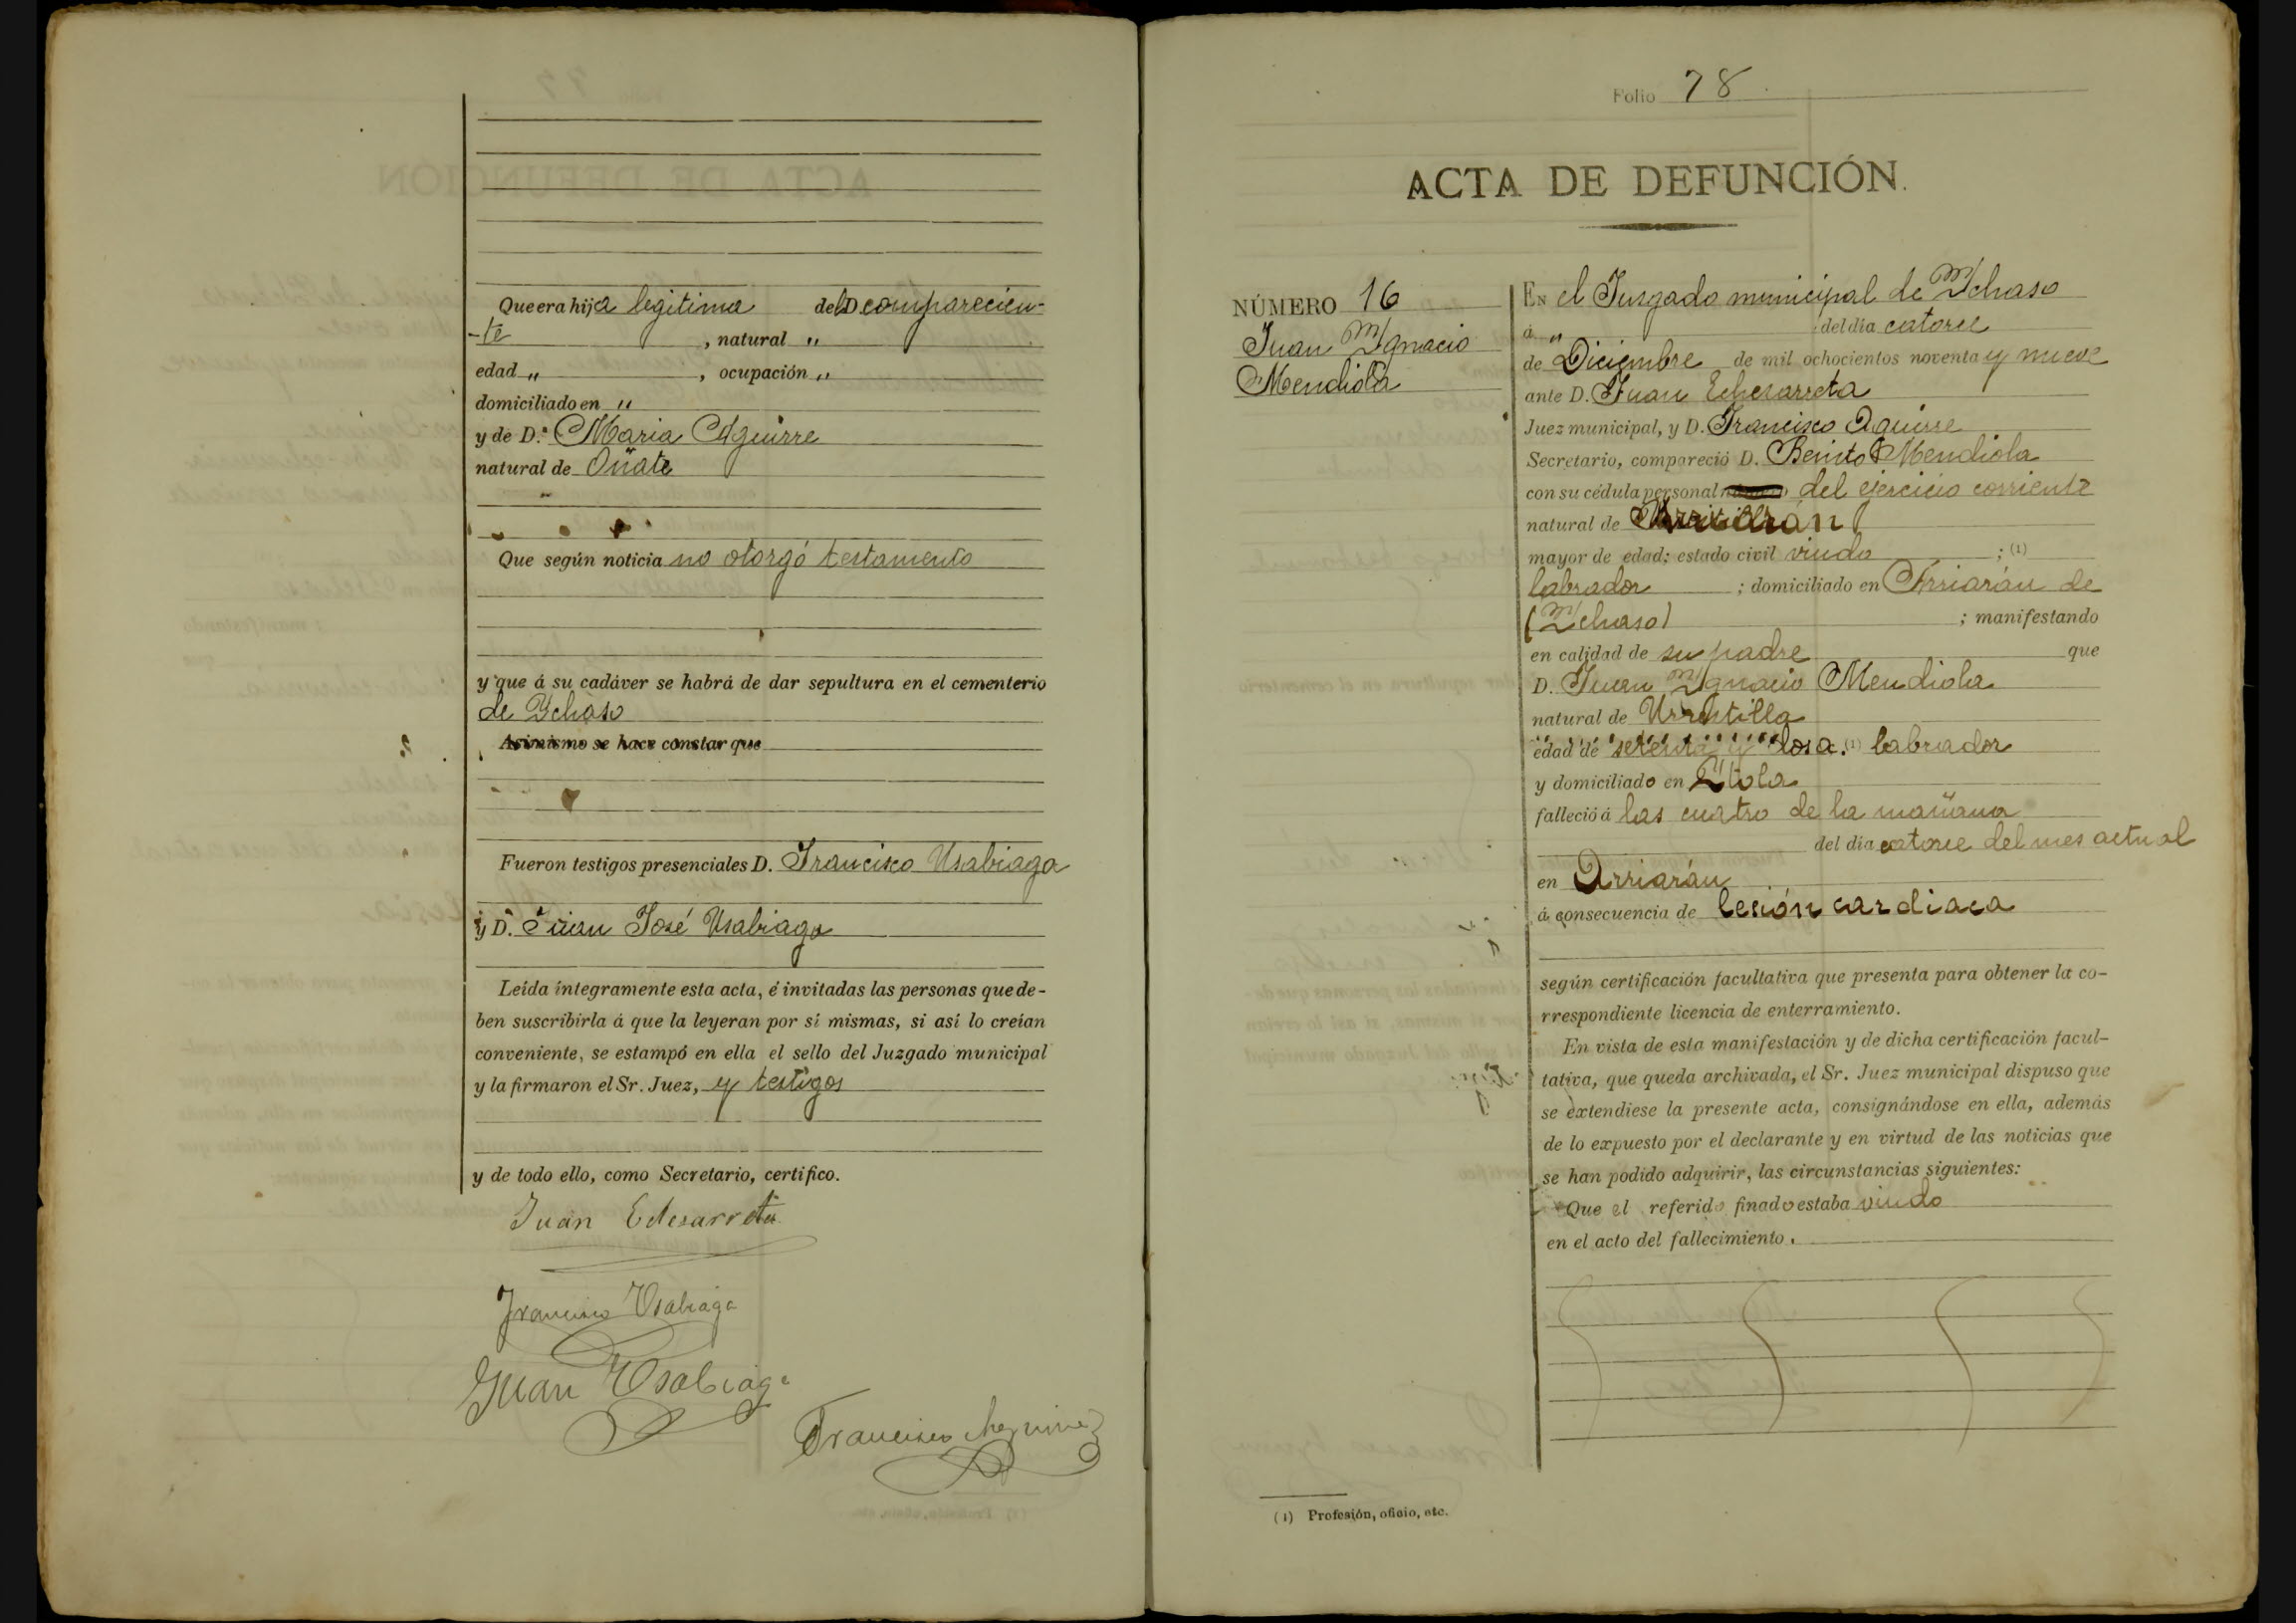 Que era hija legitima del D. comparecien-
-te , natural "
edad " , ocupación "
domiciliado en "
y de D.ª Maria Aguirre
natural de Oñate
"
Que según noticia no otorgó testamento
y que á su cadáver se habrá de dar sepultura en el cementerio
de Ychaso
Asimismo se hace constar que
Fueron testigos presenciales D. Francisco Usabiaga
y D. Juan José Usabiaga
Leída íntegramente esta acta, é invitadas las personas que de-
ben suscribirla á que la leyeran por sí mismas, si así lo creían
conveniente, se estampó en ella el sello del Juzgado municipal
y la firmaron el Sr. Juez, y testigos
y de todo ello, como Secretario, certifico.
Juan Echesarreta
Francisco Usabiaga
Juan Usabiaga
Francisco Aguirre
Folio 78.
ACTA DE DEFUNCIÓN.
NÚMERO 16
Juan Ygnacio
Mendiola
EN el Jusgado municipal de Ychaso
á " del día catorce
de Diciembre de mil ochocientos noventa y nueve
ante D. Juan Echesarreta
Juez municipal, y D. Francisco Aguirre
Secretario, compareció D. Benito Mendiola
con su cédula personal del ejercicio corriente
natural de Arriarán
mayor de edad; estado civil viudo ; (1)
labrador ; domiciliado en Arriarán de
(Ychaso) ; manifestando
en calidad de su padre que
D. Juan Ygnacio Mendiola
natural de Urrestilla
edad de setenta y dos a. (1) labrador
y domiciliado en
falleció á las cuatro de la mañana
del día catorce del mes actual
en Arriarán
á consecuencia de lesión cardiaca
según certificación facultativa que presenta para obtener la co-
rrespondiente licencia de enterramiento.
En vista de esta manifestación y de dicha certificación facul-
tativa, que queda archivada, el Sr. Juez municipal dispuso que
se extendiese la presente acta, consignándose en ella, además
de lo expuesto por el declarante y en virtud de las noticias que
se han podido adquirir, las circunstancias siguientes:
Que el referido finado estaba viudo
en el acto del fallecimiento.
(1) Profesión, oficio, etc.